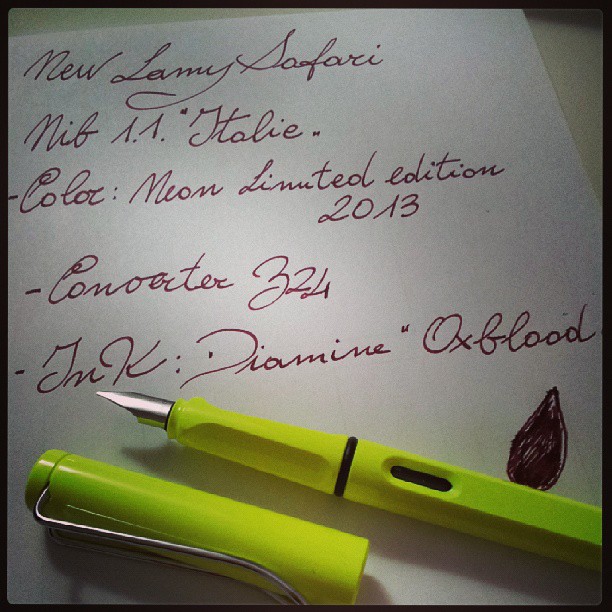 New Lamy Safari
Nib 1.1. "Italic"
- Color: Neon Limited edition
2013
- Converter Z24
- Ink: Diamine "Oxblood